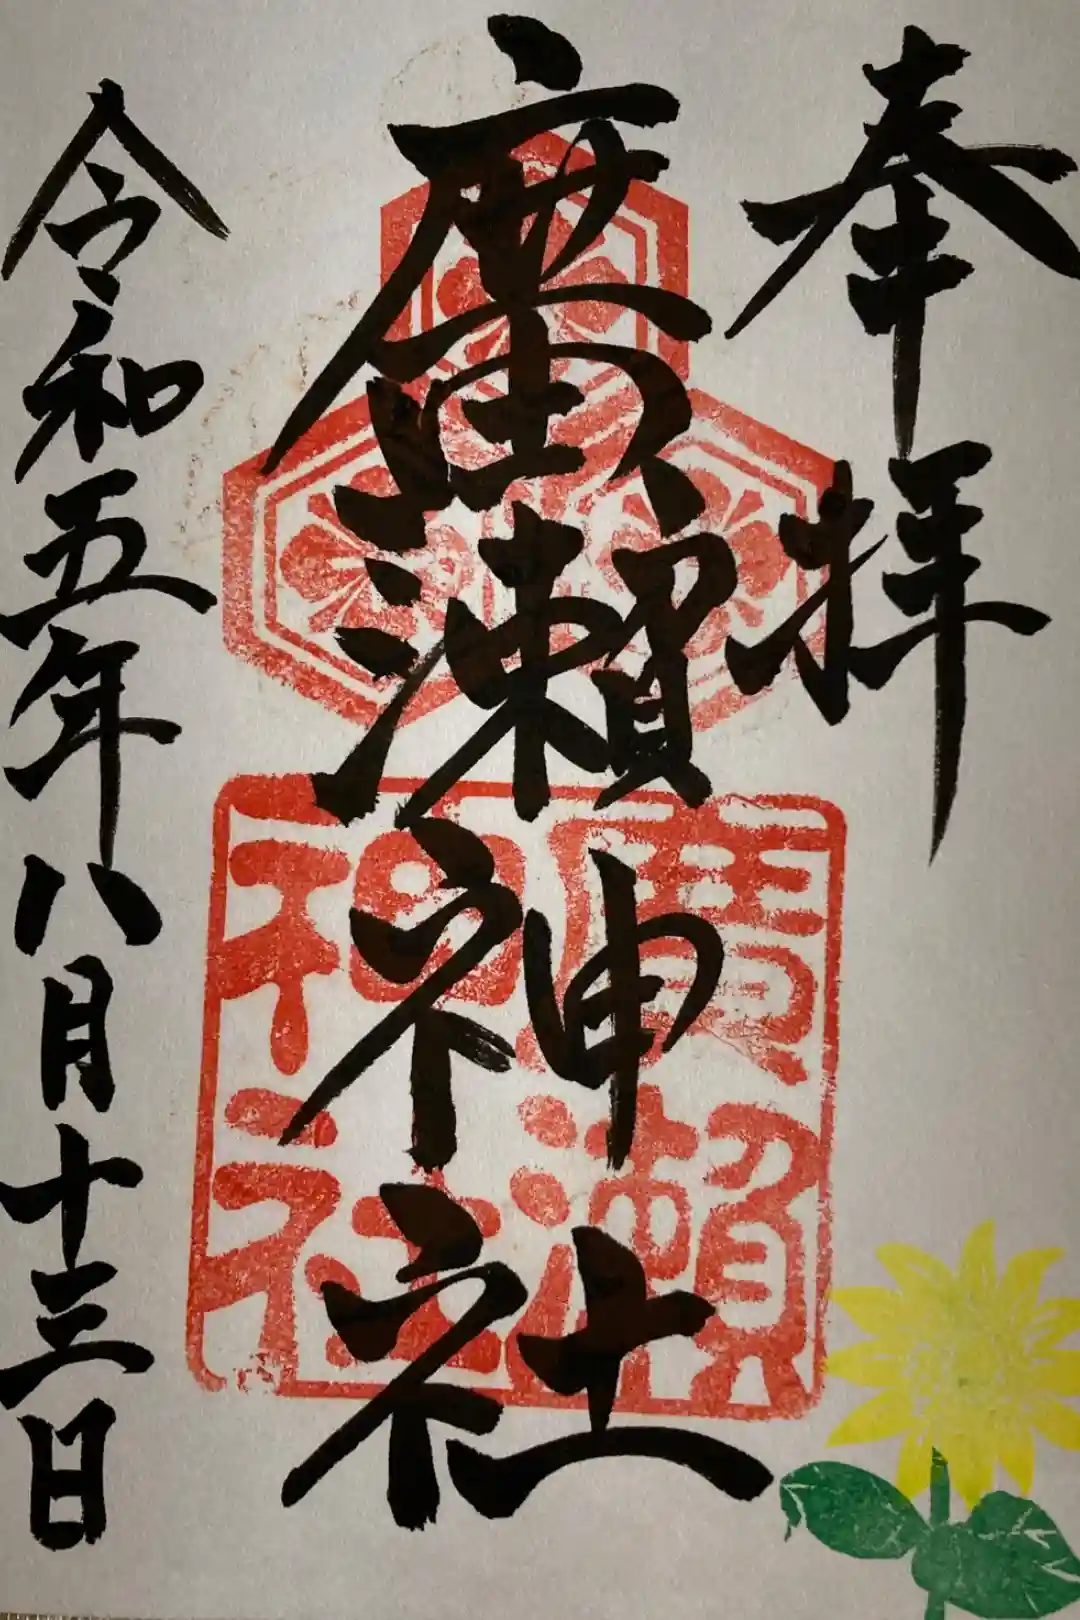 奉拝
廣瀬神社
廣瀬
神社
令和五年八月十三日